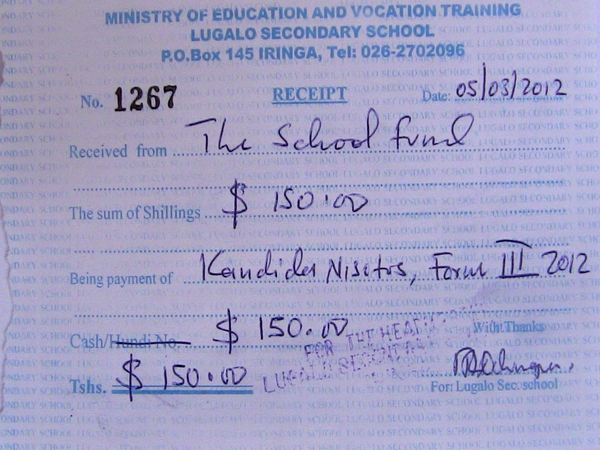 MINISTRY OF EDUCATION AND VOCATION TRAINING
LUGALO SECONDARY SCHOOL
P.O.Box 145 IRINGA, Tel: 026-2702096
No. 1267 RECEIPT Date: 05/03/2012
Received from The School fund
The sum of Shillings $ 150.00
Being payment of Kandida Nisitos, Form III 2012
Cash/Hundi No. $ 150.00 With Thanks
FOR THE HEADM
LUGALO SECONDARY
Tshs. $ 150.00 For: Lugalo Sec. school